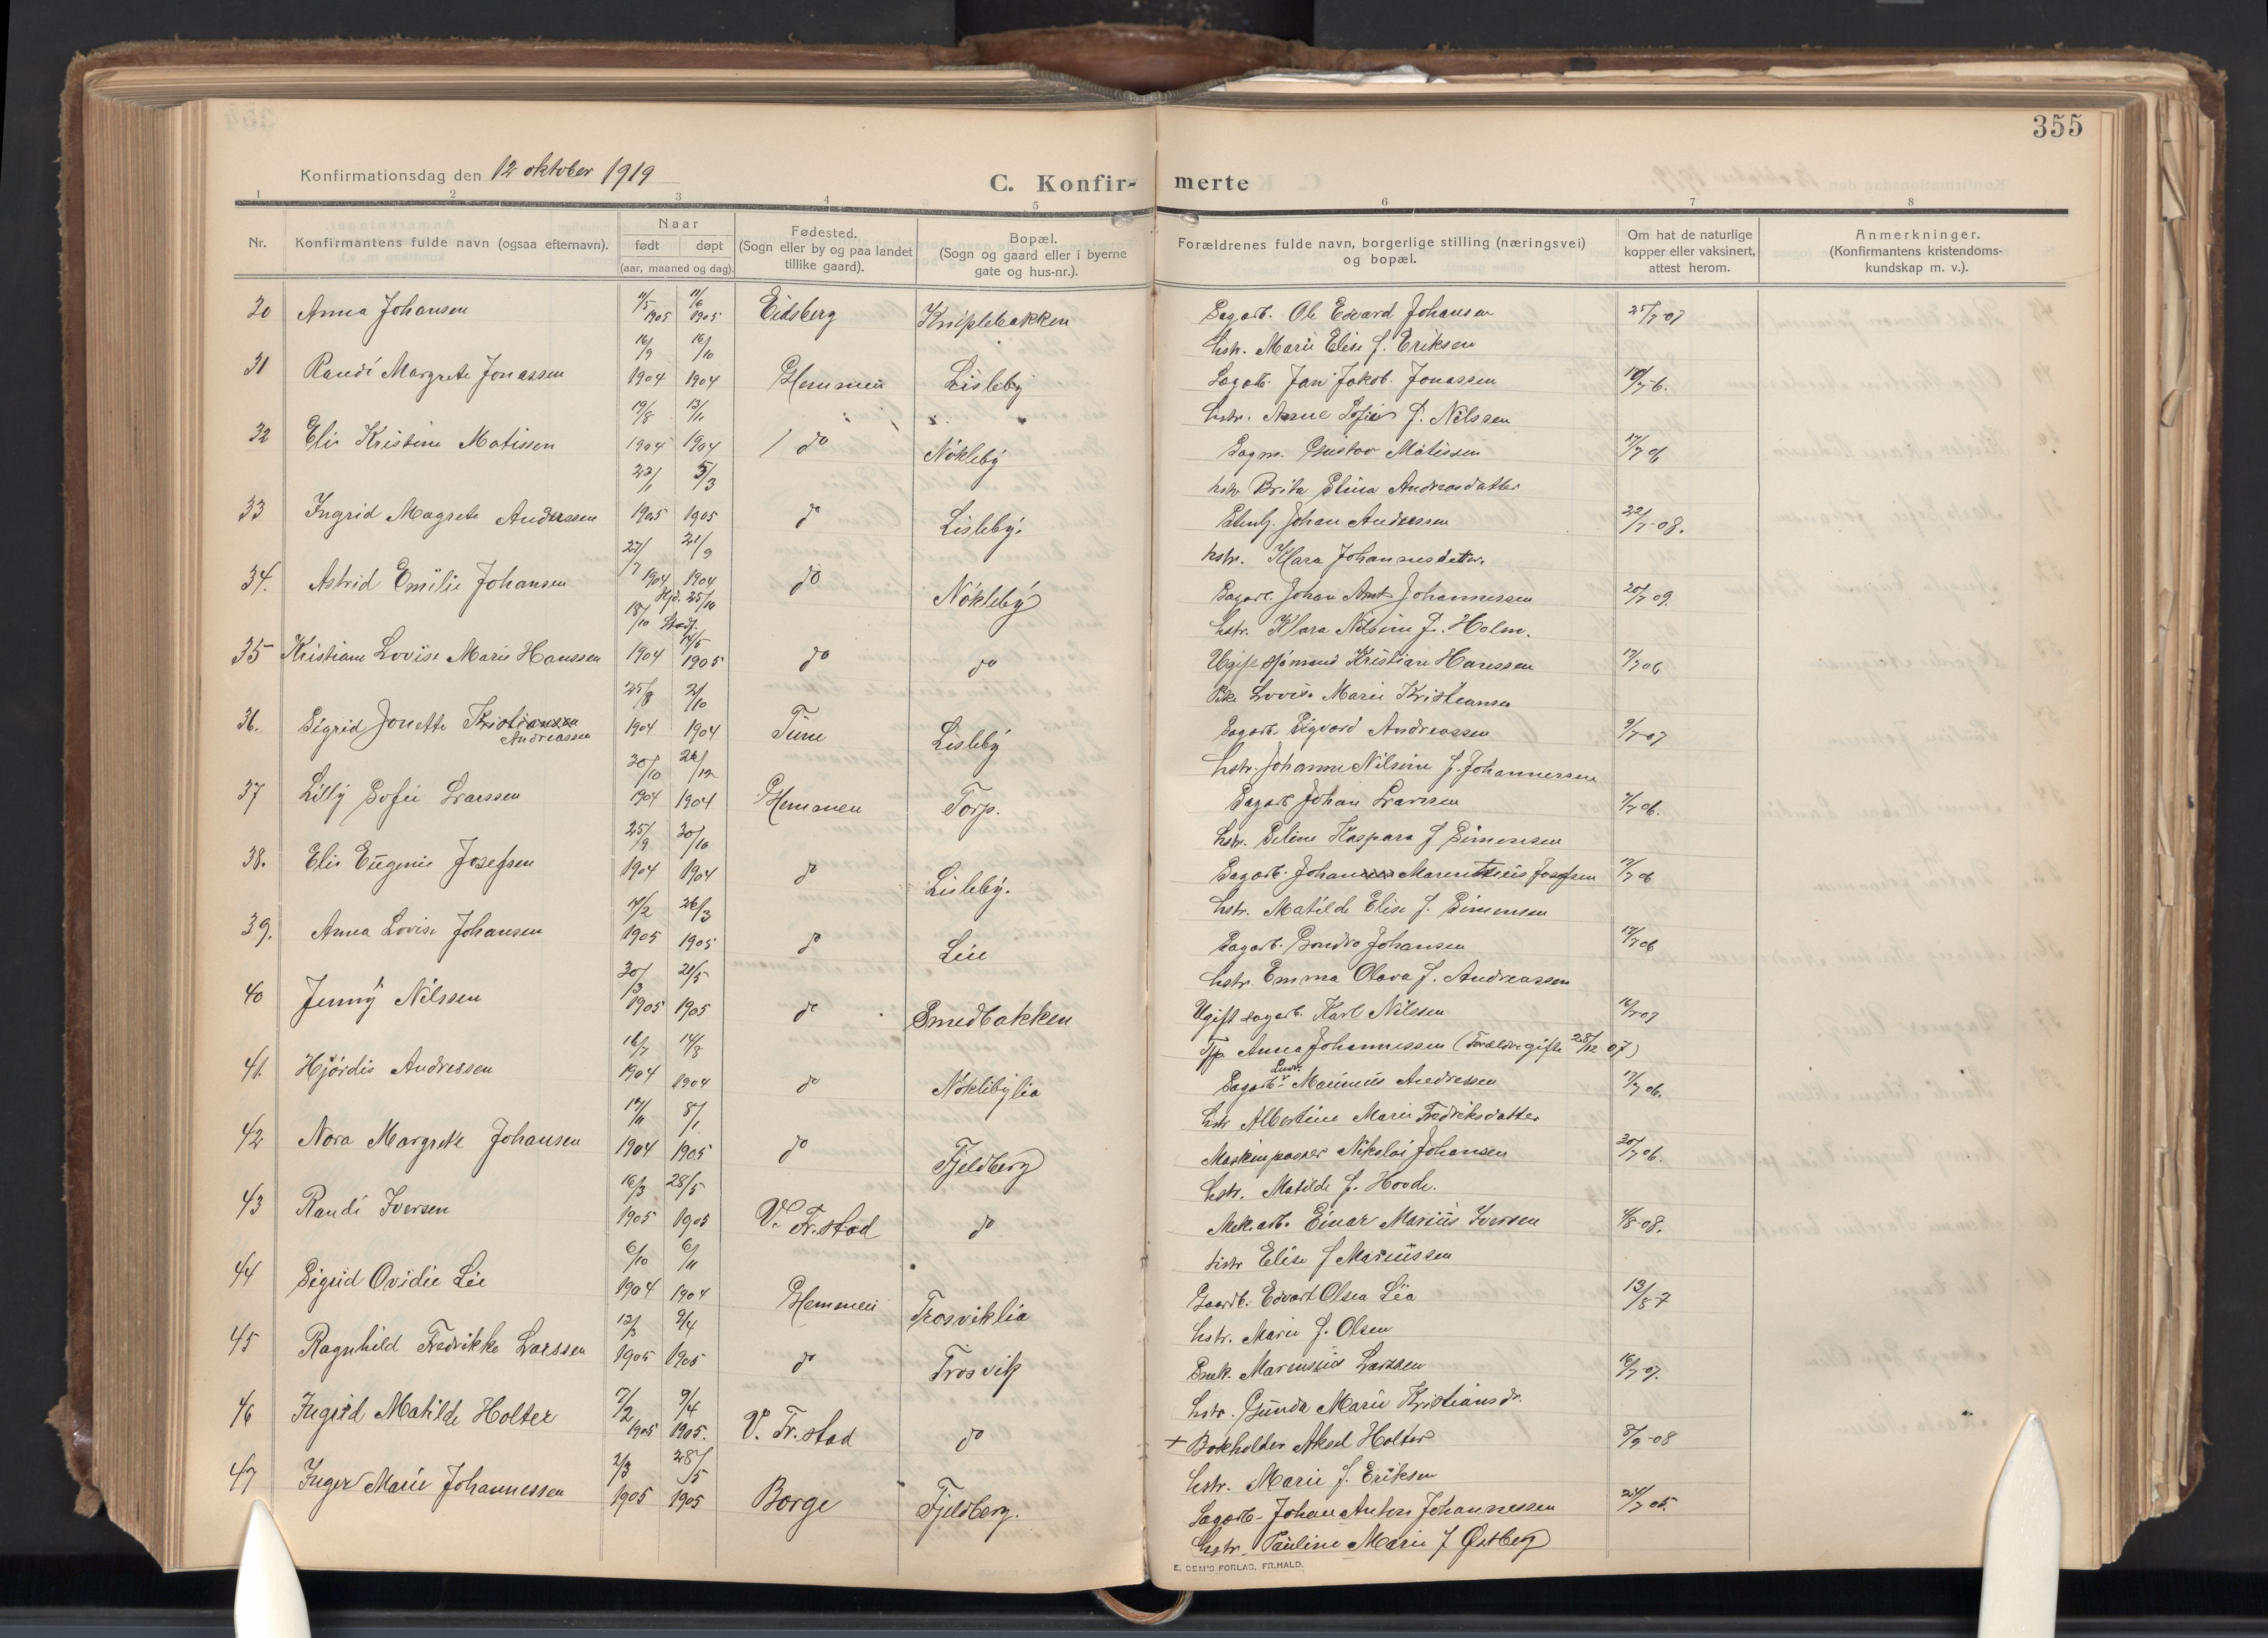 355
Konfirmationsdag den 12 oktober 1919
C. Konfir- merte
1 2 3 4 5 6 7 8
Nr. Konfirmantens fulde navn (ogsaa efternavn). Naar født døpt (aar, maaned og dag). Fødested. (Sogn eller by og paa landet tillike gaard). Bopæl. (Sogn og gaard eller i byerne gate og hus-nr.). Forældrenes fulde navn, borgerlige stilling (næringsvei) og bopæl. Om hat de naturlige kopper eller vaksinert, attest herom. Anmerkninger. (Konfirmantens kristendoms- kundskap m. v.).
30 Anna Johansen 11/5 1905 11/6 1905 Eidsberg Kniplebakken Sagarb. Ole Edvard Johansen 25/7-07
hstr. Marie Elise f. Eriksen
31 Randi Margrete Jonassen 16/9 1904 16/10 1904 Glemmen Lisleby Sagarb. Jan Jakob Jonassen
hstr. Anne Sofie f. Nilssen
32 Elis Kristine Matissen 19/8 1904 13/11 1904 do Nökleby Sagm. Gustav Matissen 17/7 06
hstr Brita Stina Andreasdatter
33 Ingrid Magrete Anderssen 22/1 1905 5/3 1905 do Lisleby. Johan Anderssen 22/7-08.
hstr. Klara Johannesdatter.
34. Astrid Emilie Johansen 27/7 1904 21/9 1904 do Nökleby Sagarb. Johan Arnt Johannessen 20/7 09.
hstr. Klara Nilsine f. Holm.
35 Kristiane Lovise Marie Hanssen 18/10 1904 Hjd. 25/10 Stadf. 14/5 1905 do do Ugift sjömand Kristian Hanssen 17/7 06
Pike Lovise Marie Kristiansen
36. Sigrid Jonette Kristiansen Andreassen 25/8 1904 2/10 1904 Tune Lisleby Sagarb. Sigvard Andreassen 9/7-07
hstr. Johanne Nilsine f. Johannessen
37 Lilly Sofie Larssen 30/10 1904 26/12 1904 Glemmen Torp. Sagarb Johan Larssen 7/7 06.
hstr. Seline Kaspara f Simonsen
38. Elis Eugenie Josefsen 25/9 1904 30/10 1904 do Lisleby. Sagarb. Johan Marentius Josefsen 17/7 06
hstr. Matilde Elise f. Simonsen
39. Anna Lovise Johansen 14/2 1905 26/3 1905 do Lie Sagarb. Sondre Johansen 17/7 06
hstr. Emma Olava f. Andreassen
40 Jenny Nilssen 30/3 1905 21/5 1905 do Smedbakken Ugift sagarb. Karl Nilssen 16/7 07
Tjp. Anna Johannessen (Forældre gifte 28/12 07)
41. Hjördis Andressen 16/7 1904 14/8 1904 do Nöklebylia Sagarb. Marinius Andressen 17/7 06.
hstr Albertine Marie Fredriksdatter
42 Nora Margrete Johansen 17/11 1904 8/1 1905 do Fjeldberg Maskinpasser Nikolai Johansen 20/7 06.
hstr. Matilde f. Hovde.
43 Randi Iversen 16/3 1905 28/5 1905 V. Fr.stad do Mek.arb. Einar Marius Iversen 4/8-08.
hstr Elise f Mariussen
44 Sigrid Ovidie Lie 6/10 1904 6/11 1904 Glemmen Trosviklia Gaardb. Edvart Olsen Lia 13/8-7
hstr. Marie f. Olsen
45 Ragnhild Fredrikke Larssen 12/3 1905 9/4 1905 do Trosvik Snek. Marensius Larssen 16/7-07.
hstr. Gunda Marie Kristiansdr.
46 Ingrid Matilde Holter 7/2 1905 9/4 1905. V. Fr.stad do + Bokholder Aksel Holter 8/9-08
hstr. Marie f. Eriksen
47 Inger Marie Johannessen 2/3 1905 28/5 1905 Borge Fjeldberg. Sagarb. Johan Anton Johannessen 24/7 05.
hstr. Pauline Marie f Østberg
E. SEM'S FORLAG, FR.HALD.